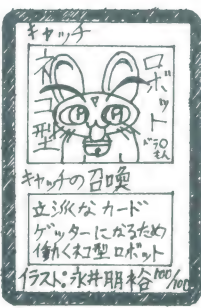 キャッチ
ネコ型
ロボット
ドラ○もん
キャッチの召喚
立派なカード
ゲッターになるため
働くネコ型ロボット
イラスト:永井朋裕
100/100